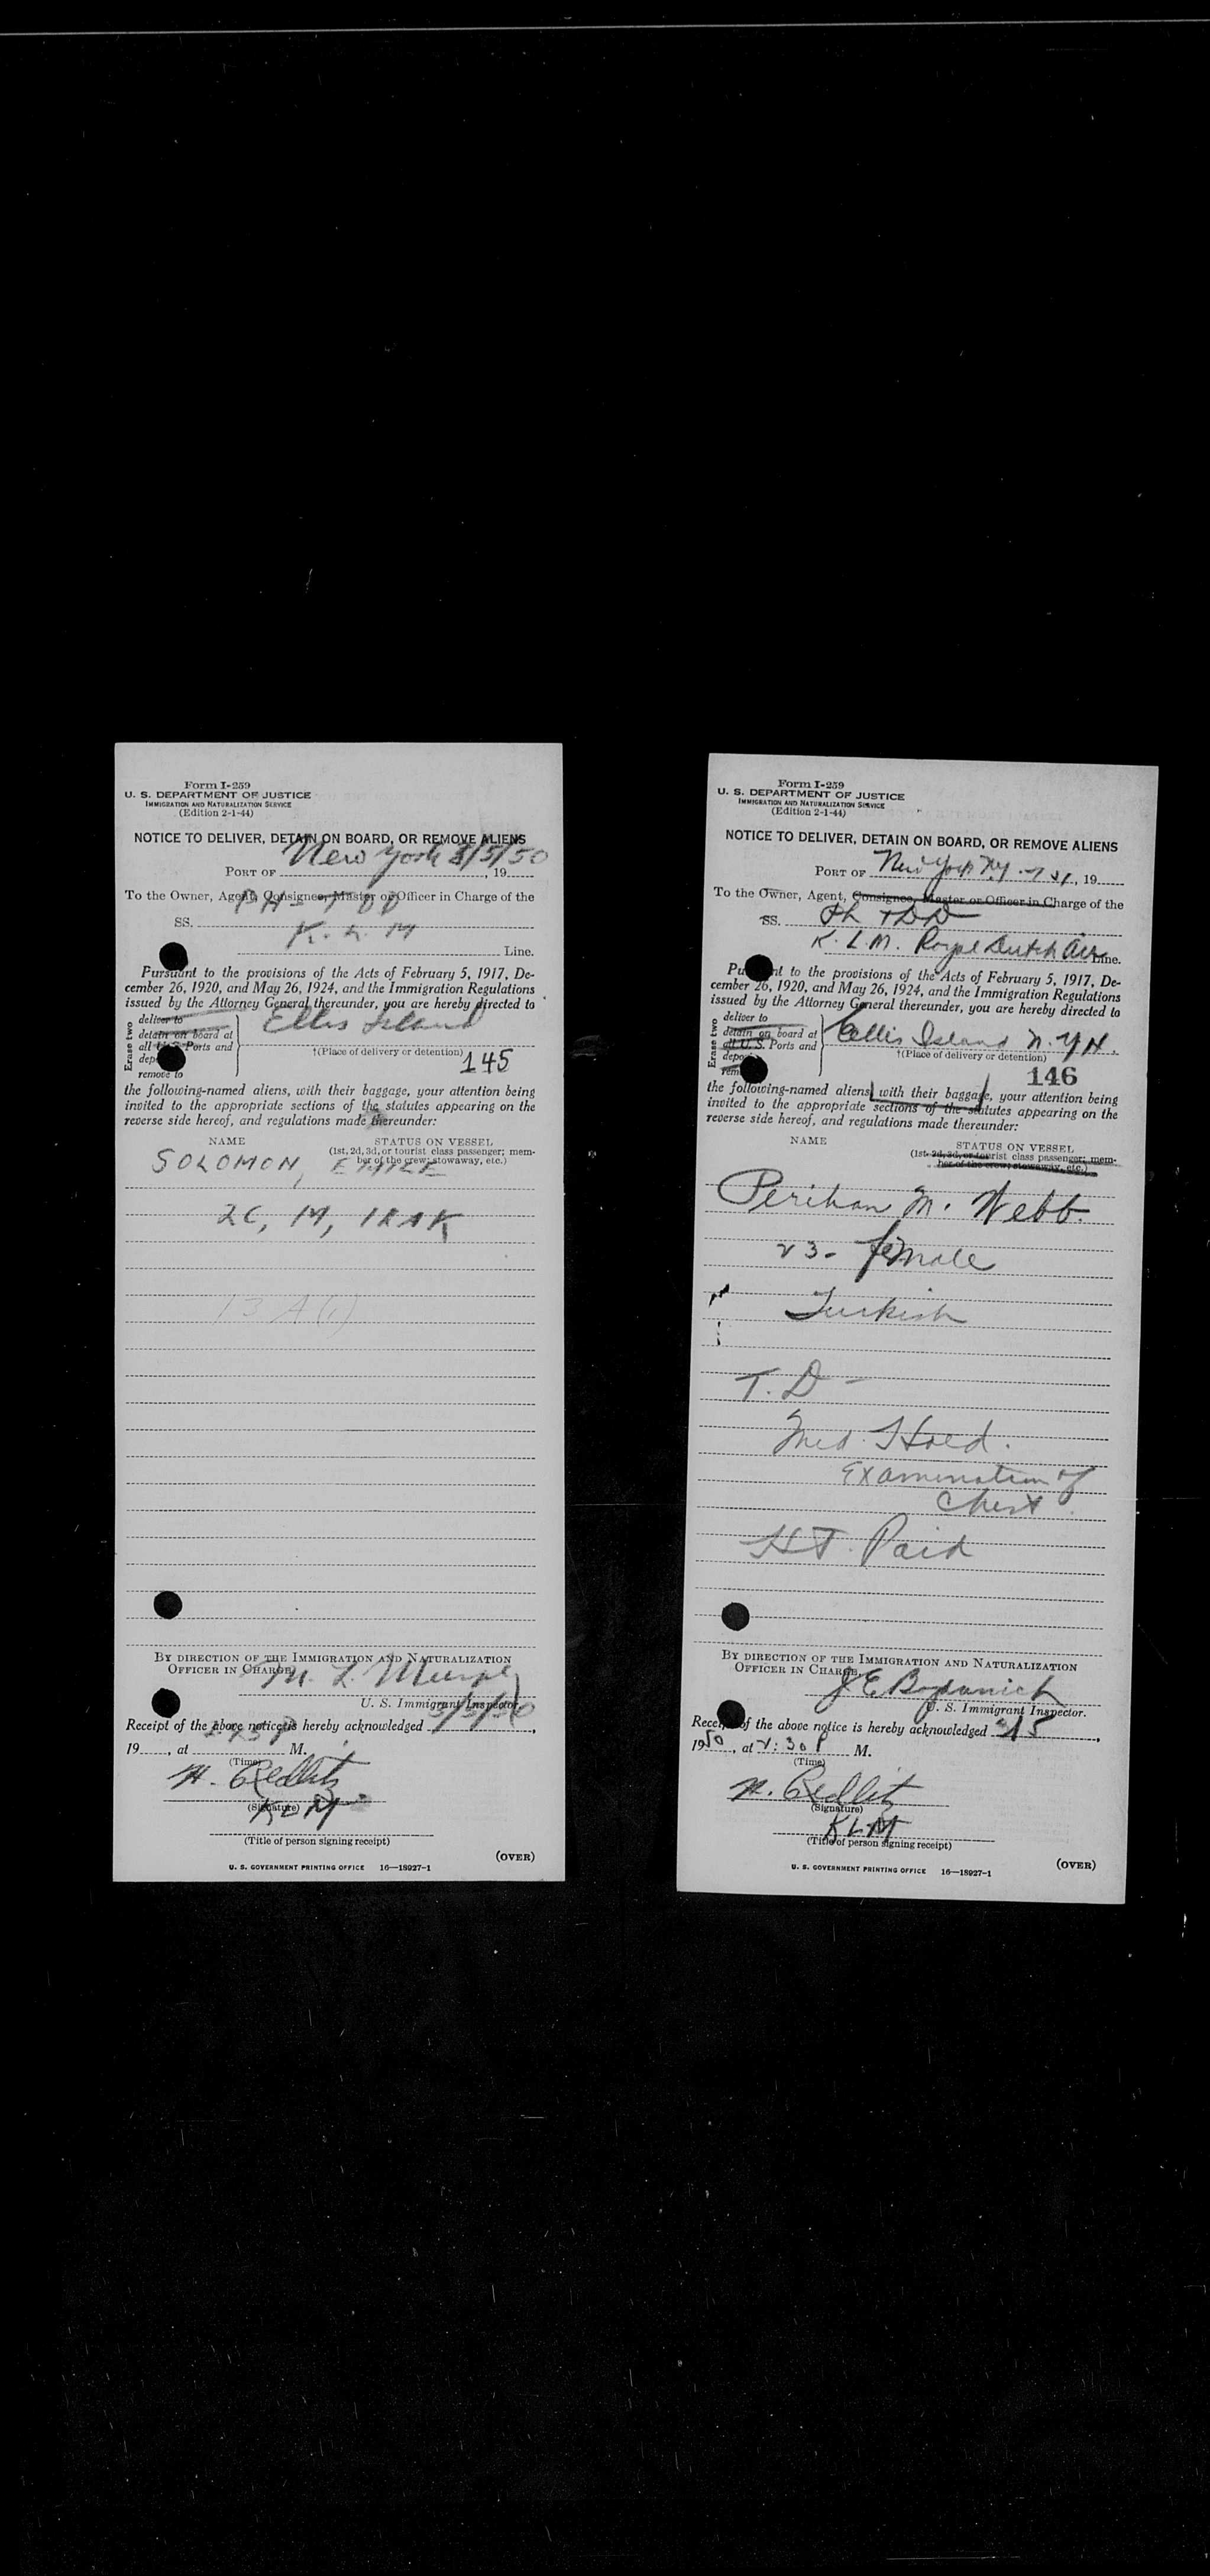 Form I-259
U. S. DEPARTMENT OF JUSTICE
IMMIGRATION AND NATURALIZATION SERVICE
(Edition 2-1-44)
NOTICE TO DELIVER, DETAIN ON BOARD, OR REMOVE ALIENS
New York 3/5/50
PORT OF , 19
To the Owner, Agent, Consignee, Master or Officer in Charge of the
SS. PH-TDD
K. L. M Line.
Pursuant to the provisions of the Acts of February 5, 1917, De-
cember 26, 1920, and May 26, 1924, and the Immigration Regulations
issued by the Attorney General thereunder, you are hereby directed to
Erase two
deliver to
detain on board at
all U. S. Ports and
remove to
Ellis Island
†(Place of delivery or detention)
145
the following-named aliens, with their baggage, your attention being
invited to the appropriate sections of the statutes appearing on the
reverse side hereof, and regulations made thereunder:
NAME STATUS ON VESSEL
(1st, 2d, 3d, or tourist class passenger; mem-
ber of the crew; stowaway, etc.)
SOLOMON, EMILE
M, IRAK
13 A (1)
BY DIRECTION OF THE IMMIGRATION AND NATURALIZATION
OFFICER IN CHARGE
M. L.
U. S. Immigrant Inspector.
3/5/50
Receipt of the above notice is hereby acknowledged ,
19 , at M.
(Time)
H. Redlitz
(Signature)
KLM
(Title of person signing receipt)
(OVER)
U. S. GOVERNMENT PRINTING OFFICE 16—18927-1
Form I-259
U. S. DEPARTMENT OF JUSTICE
IMMIGRATION AND NATURALIZATION SERVICE
(Edition 2-1-44)
NOTICE TO DELIVER, DETAIN ON BOARD, OR REMOVE ALIENS
PORT OF New York NY , 19
To the Owner, Agent, Consignee, Master or Officer in Charge of the
SS. Ph TDD
K. L. M. Royal Dutch Air Line.
Pursuant to the provisions of the Acts of February 5, 1917, De-
cember 26, 1920, and May 26, 1924, and the Immigration Regulations
issued by the Attorney General thereunder, you are hereby directed to
Erase two
deliver to
detain on board at
all U. S. Ports and
Ellis Island N. Y H.
†(Place of delivery or detention)
146
the following-named aliens, with their baggage, your attention being
invited to the appropriate sections of the statutes appearing on the
reverse side hereof, and regulations made thereunder:
NAME STATUS ON VESSEL
(1st, 2d, 3d, or tourist class passenger; mem-
ber of the crew; stowaway, etc.)
Perihan M. Webb.
23 - female
Turkish
T. D -
Med. Hold.
Examination of
Chest
HT. Paid
BY DIRECTION OF THE IMMIGRATION AND NATURALIZATION
OFFICER IN CHARGE
J E
U. S. Immigrant Inspector.
Receipt of the above notice is hereby acknowledged 3/5 ,
1950, at 2:30 P M.
(Time)
H. Redlitz
(Signature)
KLM
(Title of person signing receipt)
(OVER)
U. S. GOVERNMENT PRINTING OFFICE 16—18927-1